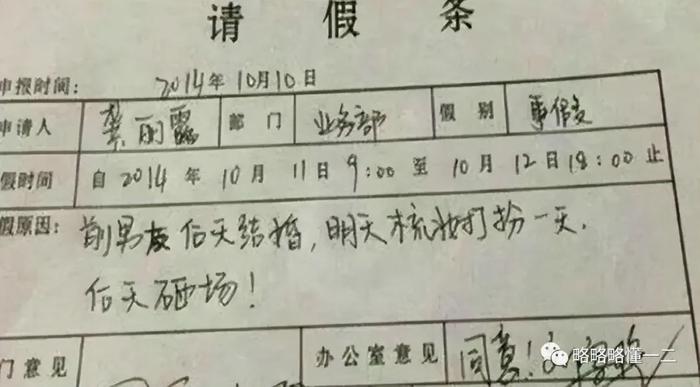 请假条
申报时间: 2014年10月10日
申请人 龚丽露 部门 业务部 假别 事假
假时间 自2014年10月11日9:00至10月12日18:00止
假原因: 前男友后天结婚,明天梳妆打扮一天.
后天砸场!
门意见 办公室意见 同意!
略略略懂一二